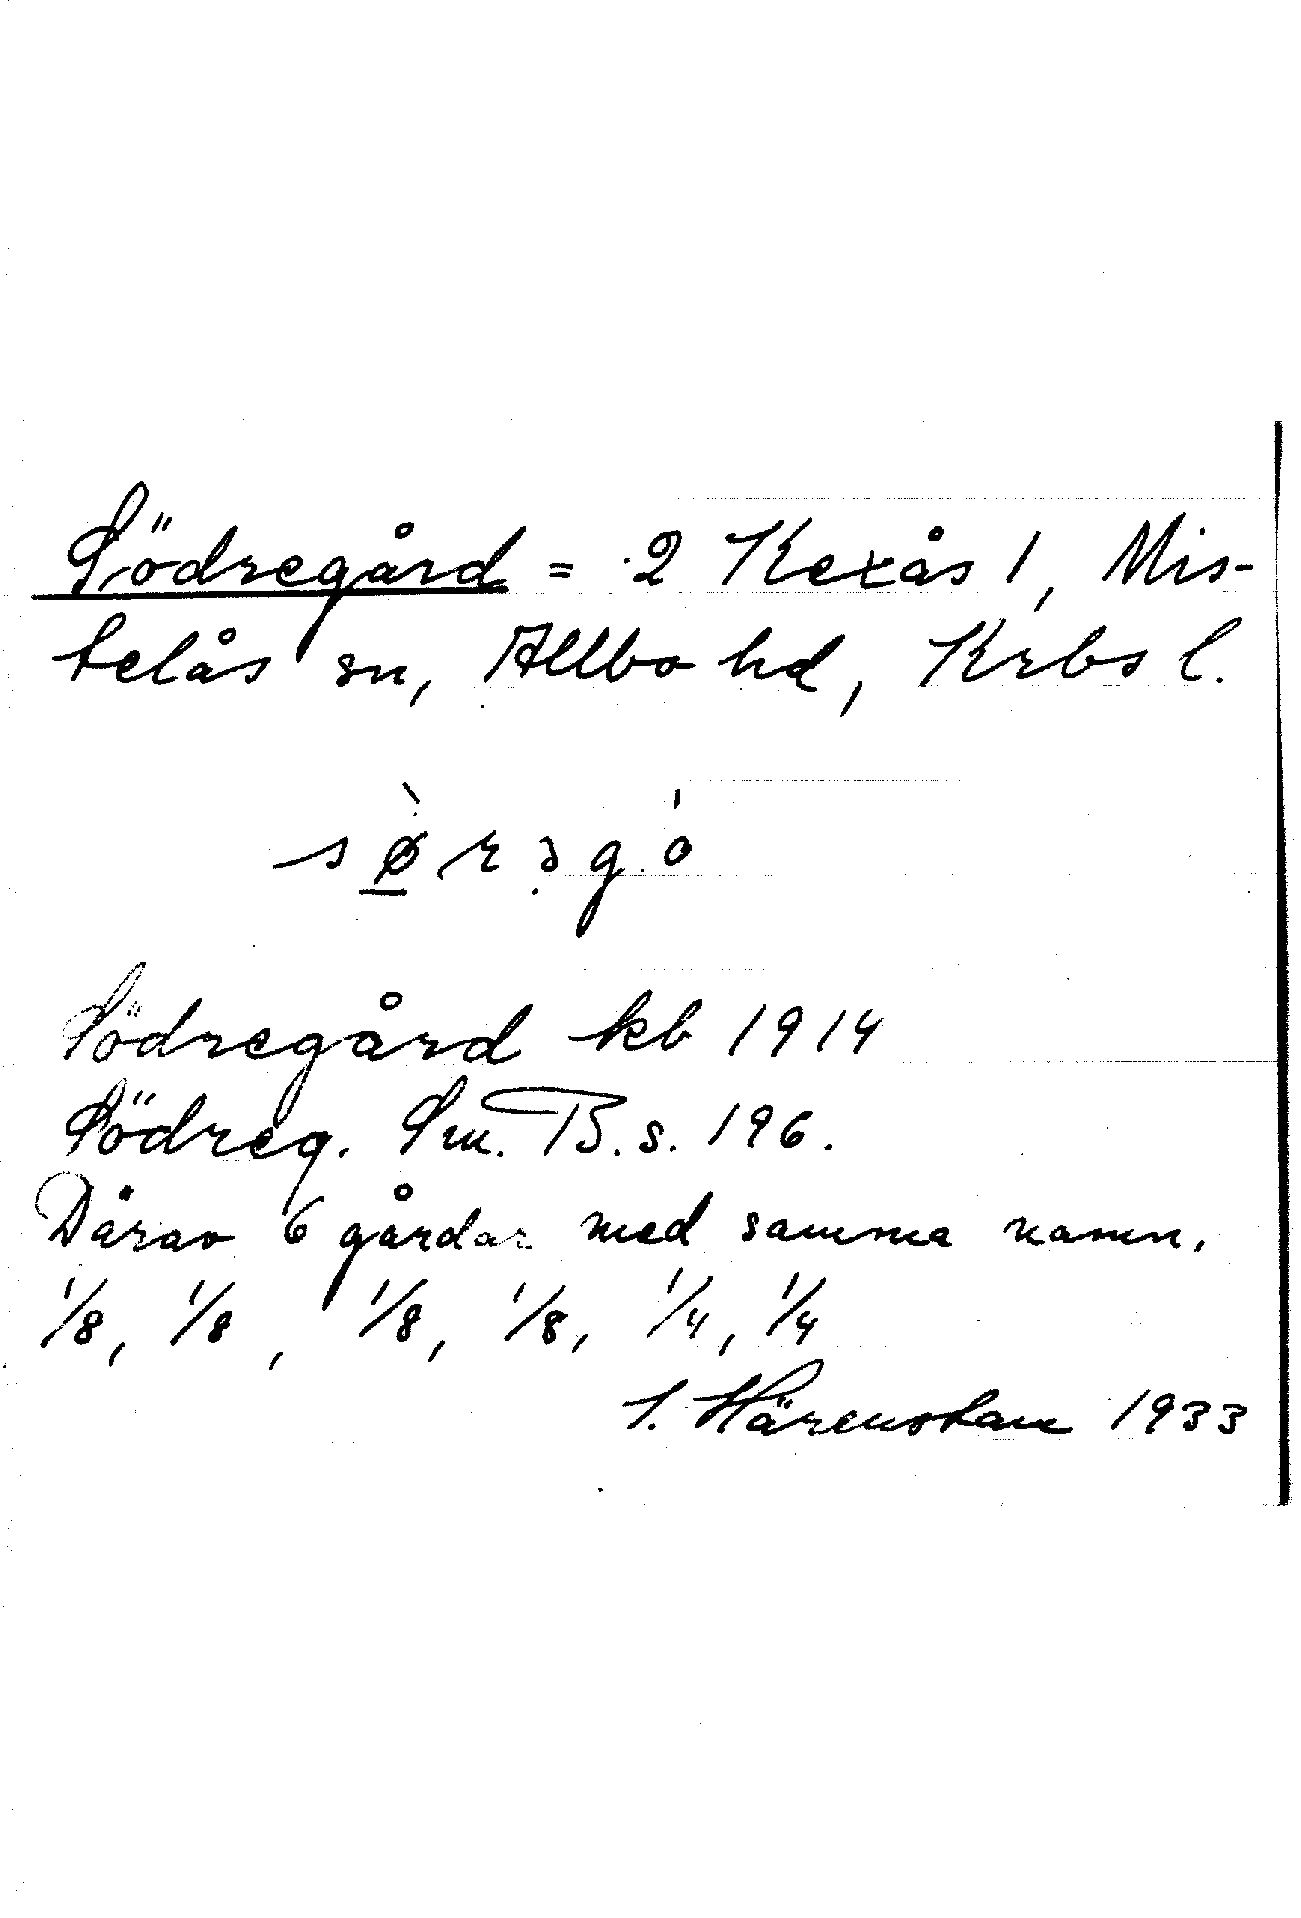 Södregård = 2 Kexås 1, Mis-
telås sn, Allbo hd, Krbs l.
sø̱̀rə̣gó
Södregård kb 1914
Södreg. Sm. B. s. 196.
Därav 6 gårdar med samma namn.
1/8, 1/8, 1/8, 1/8, 1/4, 1/4
S. Härenstam 1933